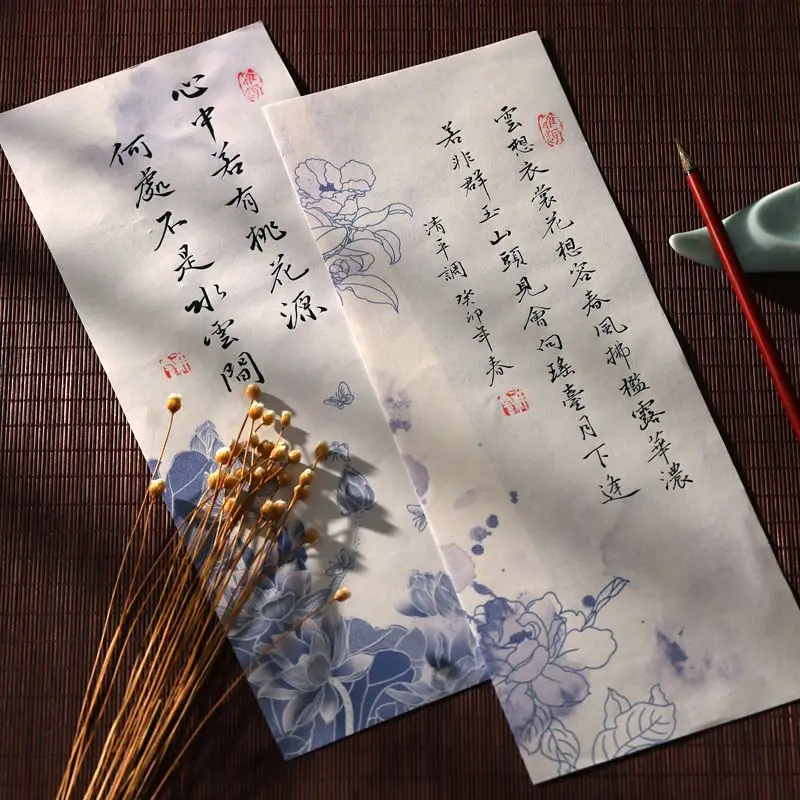 雲想衣裳花想容春風拂檻露華濃
若非群玉山頭見會向瑤臺月下逢
清平調癸卯年春
心中若有桃花源
何處不是水雲間